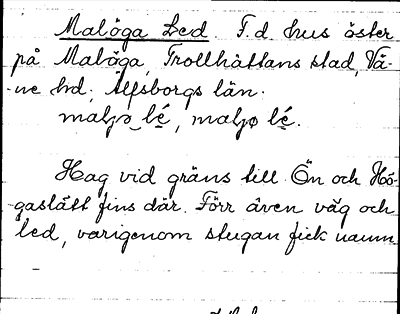 Malöga Led. F.d. hus öster
på Malöga, Trollhättans stad, Vä-
ne hd; Älfsborgs län.
maljø lé, maljø lé.
Hag vid gräns till Ön och Hö-
gaslätt fins där. Förr även väg och
led, varigenom stugan fick namn